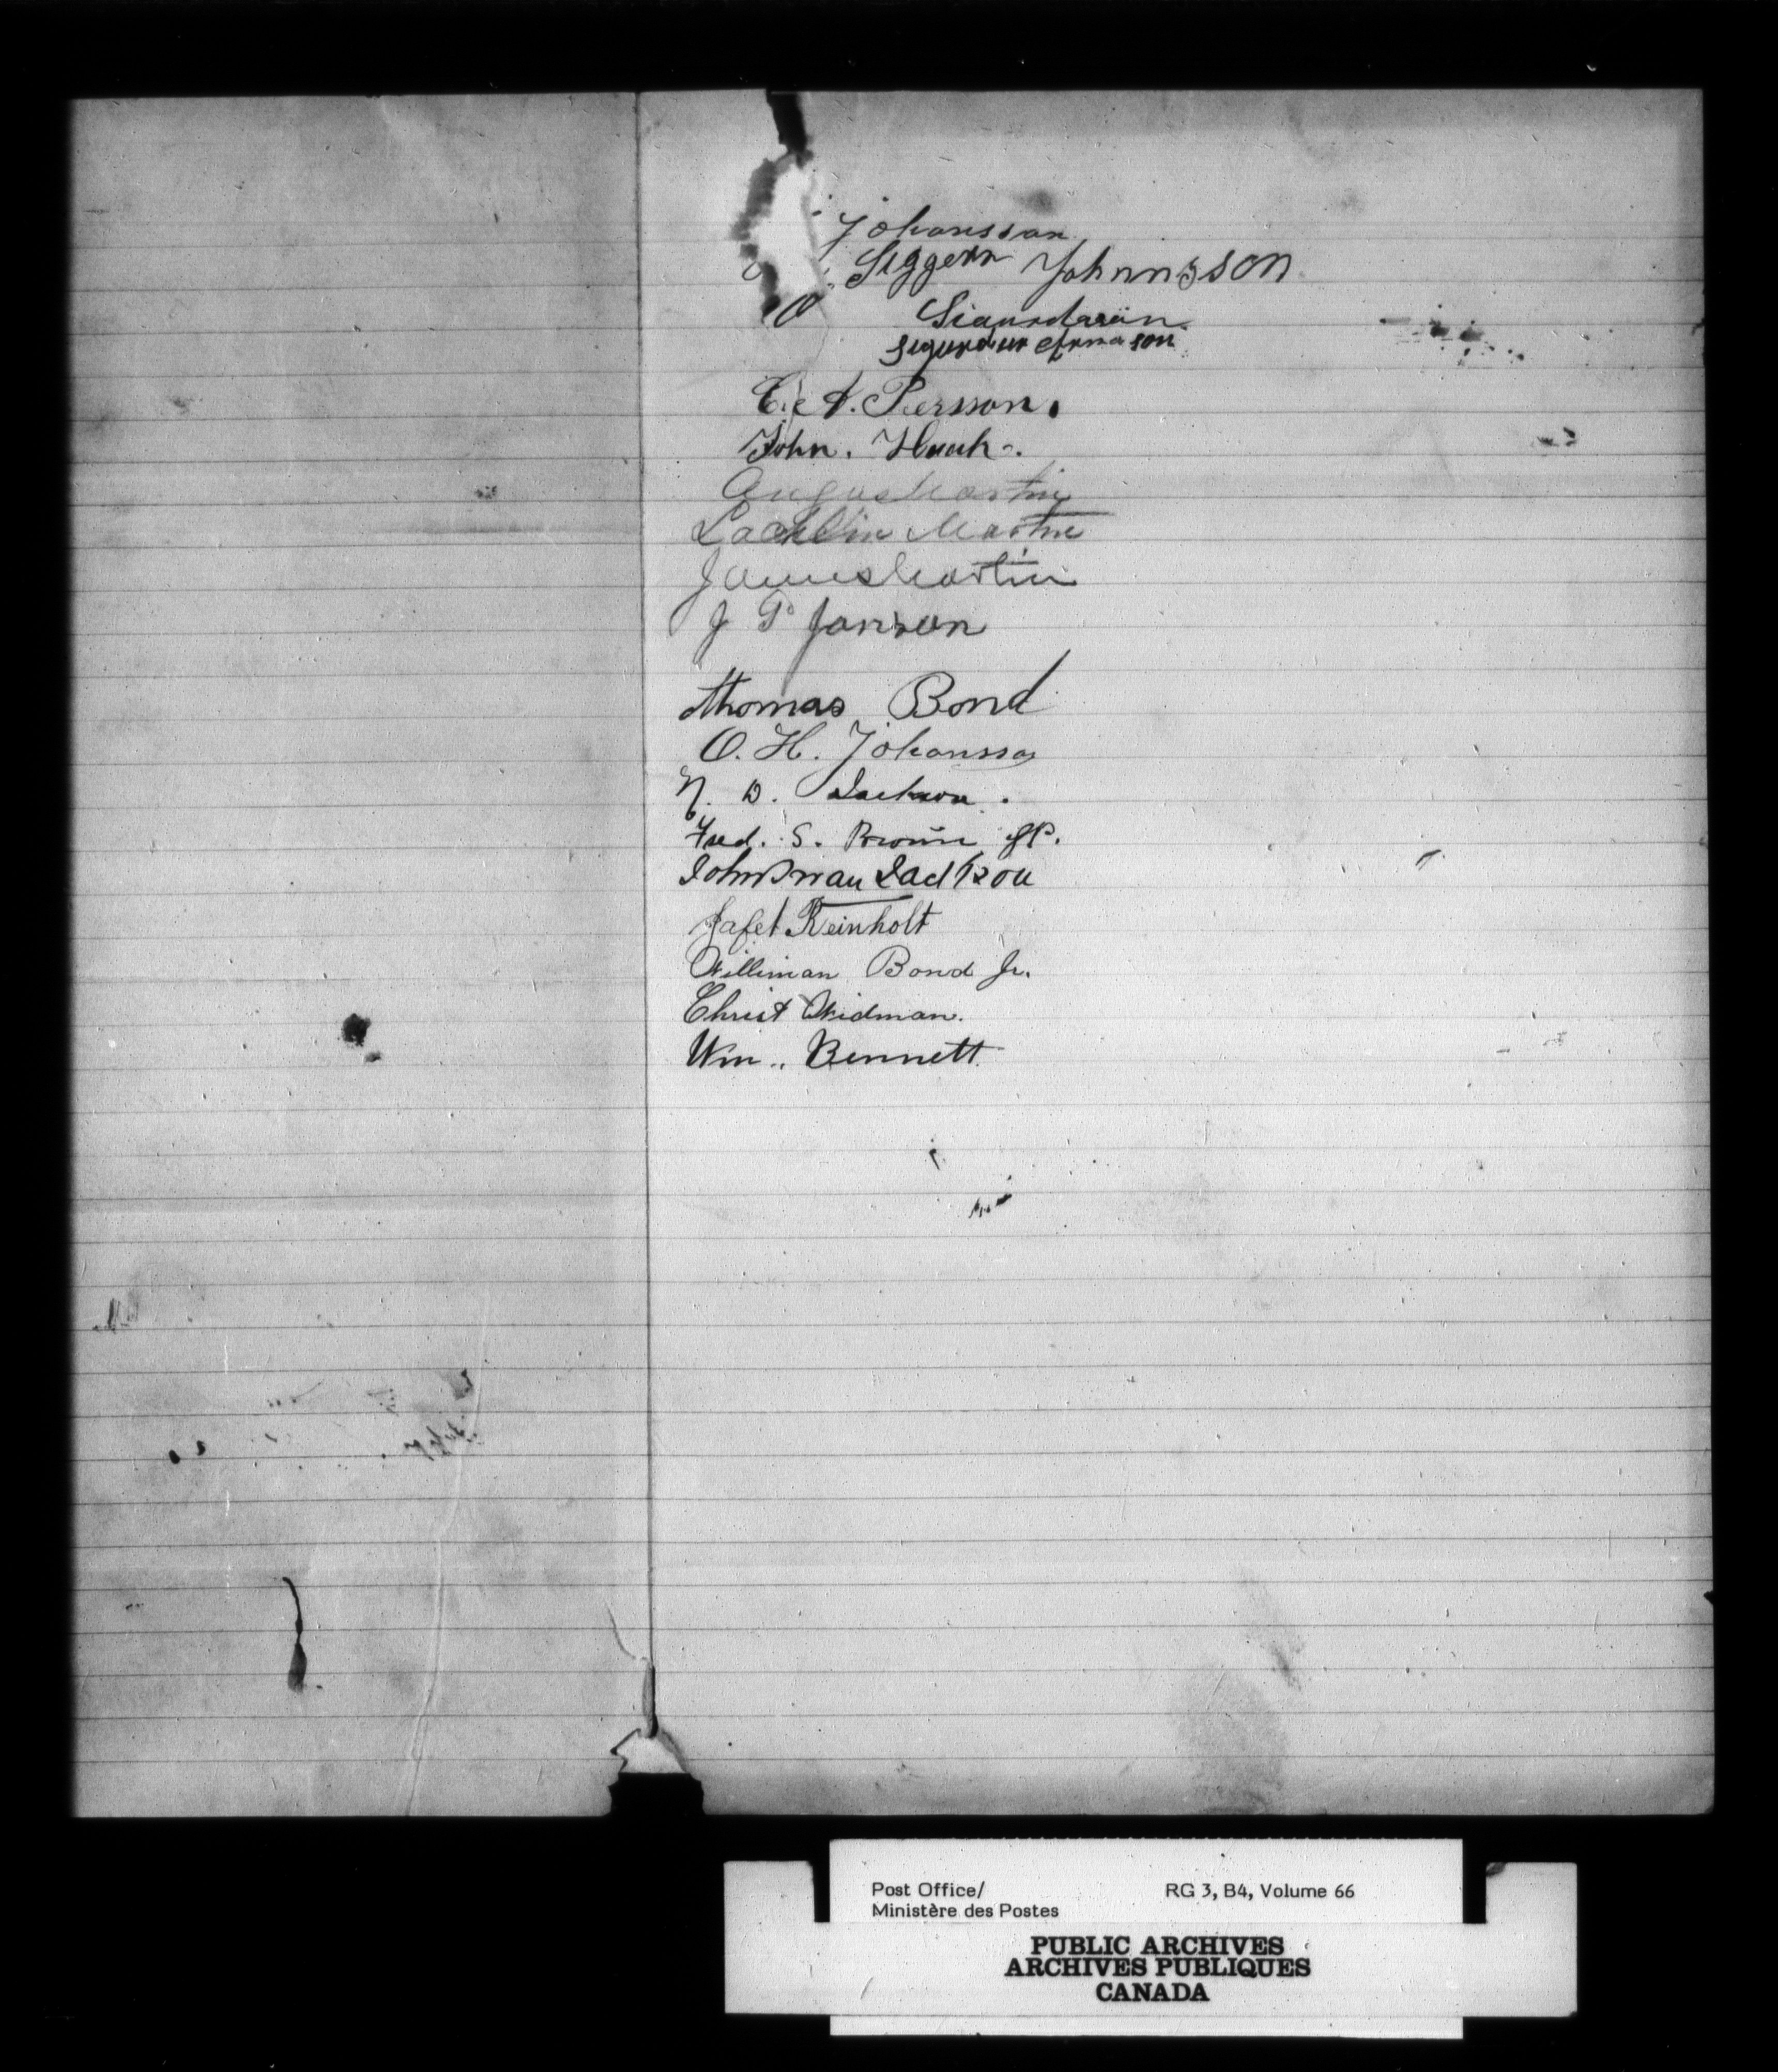 Johansson
Siggeir Johnnsson
O Sigurdsson
Sigurdur Arnason
C. A. Persson.
John. Hauk.
Angus Martin
Lachlin Martin
James Martin
J P Jonson
Thomas Bond
O. H. Johansson
N. D. Jackson.
Fred. S. Brown JP.
John Swan Jackson
Jafet Reinholt
Williman Bond Jr.
Christ Widman.
Wm.. Bennett.
Post Office/ RG 3, B4, Volume 66
Ministère des Postes
PUBLIC ARCHIVES
ARCHIVES PUBLIQUES
CANADA